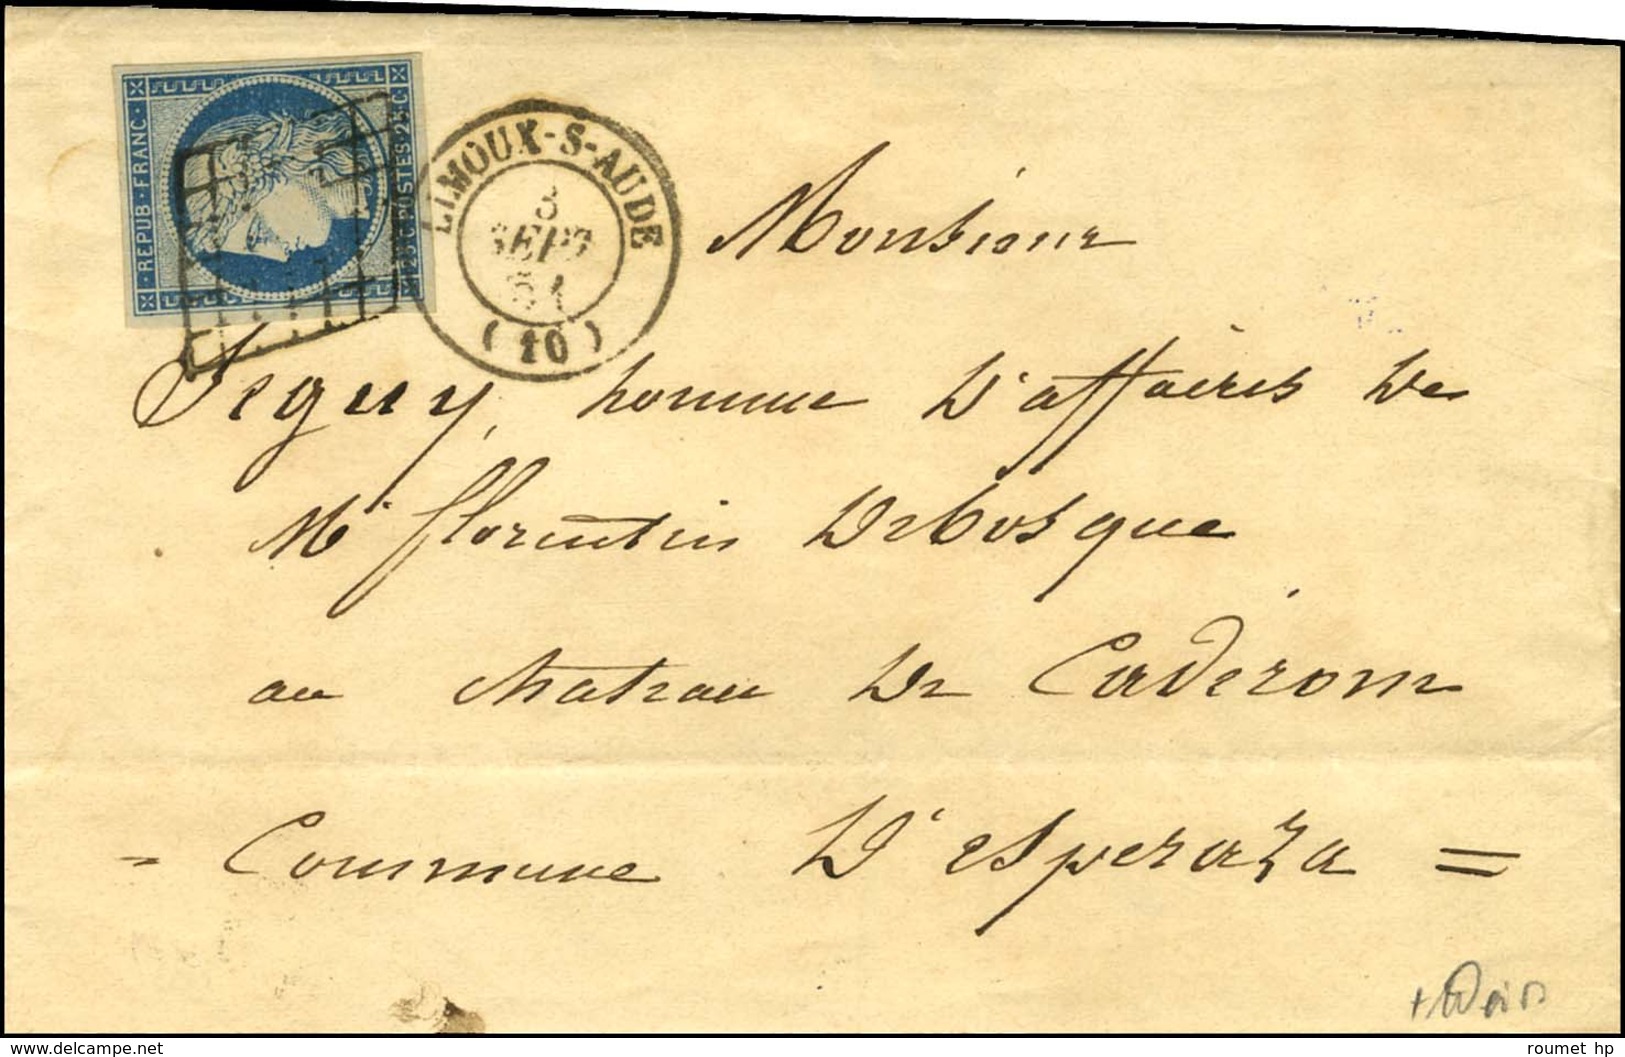 REPUB·FRANC·
25·C·POSTES·25·C
LIMOUX-S-AUDE
SEPT
51
(10)
Monsieur
Seguy, homme d'affaires de
Mr florentin Debosque
au chateau de Caderone
= Commune d'esperaza =
www.delcampe.net
roumet_hp